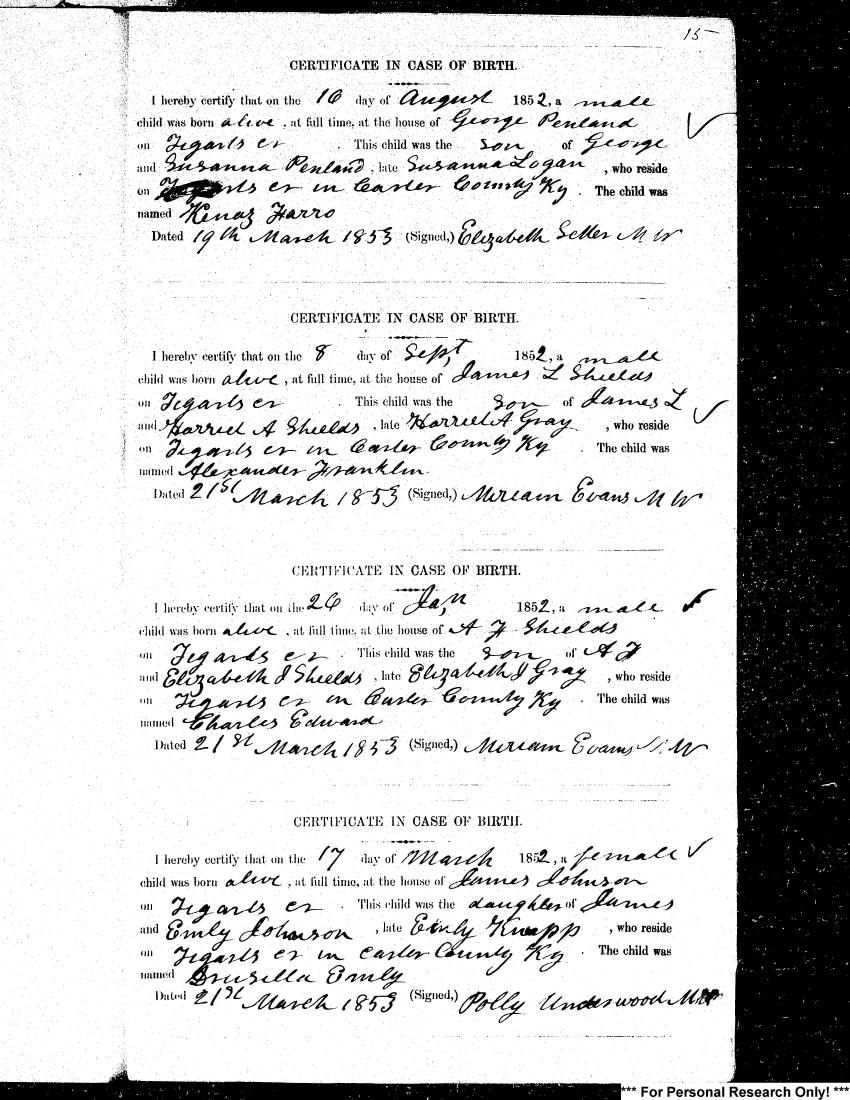 15
CERTIFICATE IN CASE OF BIRTH.
I hereby certify that on the 16 day of August 1852, a male
child was born alive, at full time, at the house of George Penland
on Tygarts cr. This child was the son of George
and Susanna Penland, late Susanna Logan, who reside
on Tygarts cr in Carter County Ky. The child was
named Kenaz Farro
Dated 19th March 1853 (Signed,) Elizabeth Setter M W
CERTIFICATE IN CASE OF BIRTH.
I hereby certify that on the 8 day of Sept 1852, a male
child was born alive, at full time, at the house of James L Shields
on Tigarts cr. This child was the son of James L
and Harriet A Shields, late Harriet A Gray, who reside
on Tigarts cr in Carter County Ky. The child was
named Alexander Franklin
Dated 21st March 1853 (Signed,) Miriam Evans M W
CERTIFICATE IN CASE OF BIRTH.
I hereby certify that on the 26 day of Jan 1852, a male
child was born alive, at full time, at the house of A F Shields
on Tigards cr. This child was the son of A F
and Elizabeth J Shields, late Elizabeth J Gray, who reside
on Tigarts cr in Carter County Ky. The child was
named Charles Edward
Dated 21st March 1853 (Signed,) Miriam Evans M. W
CERTIFICATE IN CASE OF BIRTH.
I hereby certify that on the 17 day of March 1852, a female
child was born alive, at full time, at the house of James Johnson
on Tigarts cr. This child was the daughter of James
and Emily Johnson, late Emily Knapp, who reside
on Tigarts cr in Carter County Ky. The child was
named Drusilla Emily
Dated 21st March 1853 (Signed,) Polly Underwood M W
*** For Personal Research Only! ***